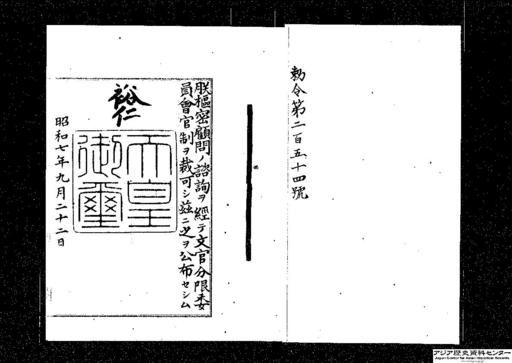 勅令第二百五十四號
朕樞密顧問ノ諮詢ヲ經テ文官分限委
員會官制ヲ裁可シ茲ニ之ヲ公布セシム
裕仁
天皇
御璽
昭和七年九月二十二日
アジア歴史資料センター
Japan Center for Asian Historical Records